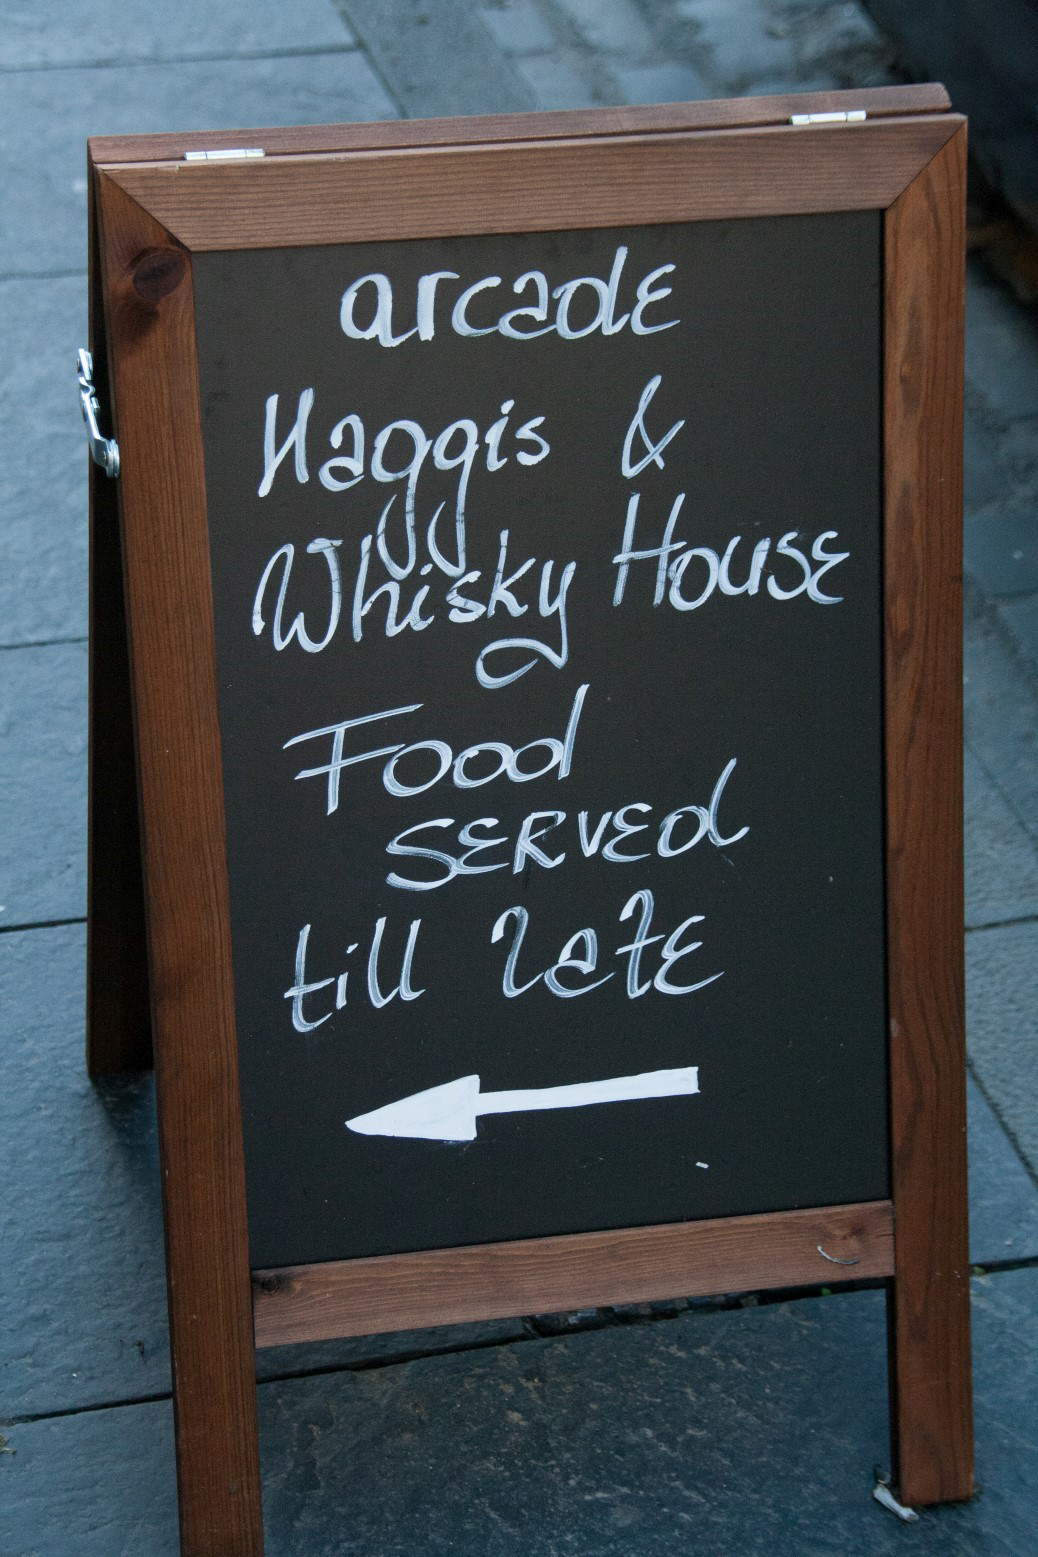 arcade
Haggis &
Whisky House
Food
SERVEd
till late